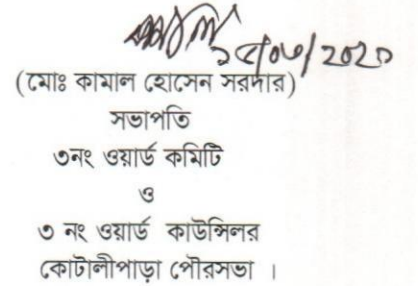 ২৫/০৬/২০২০
(মোঃ কামাল হোসেন সরদার)
সভাপতি
৩নং ওয়ার্ড কমিটি
ও
৩ নং ওয়ার্ড কাউন্সিলর
কোটালীপাড়া পৌরসভা ।